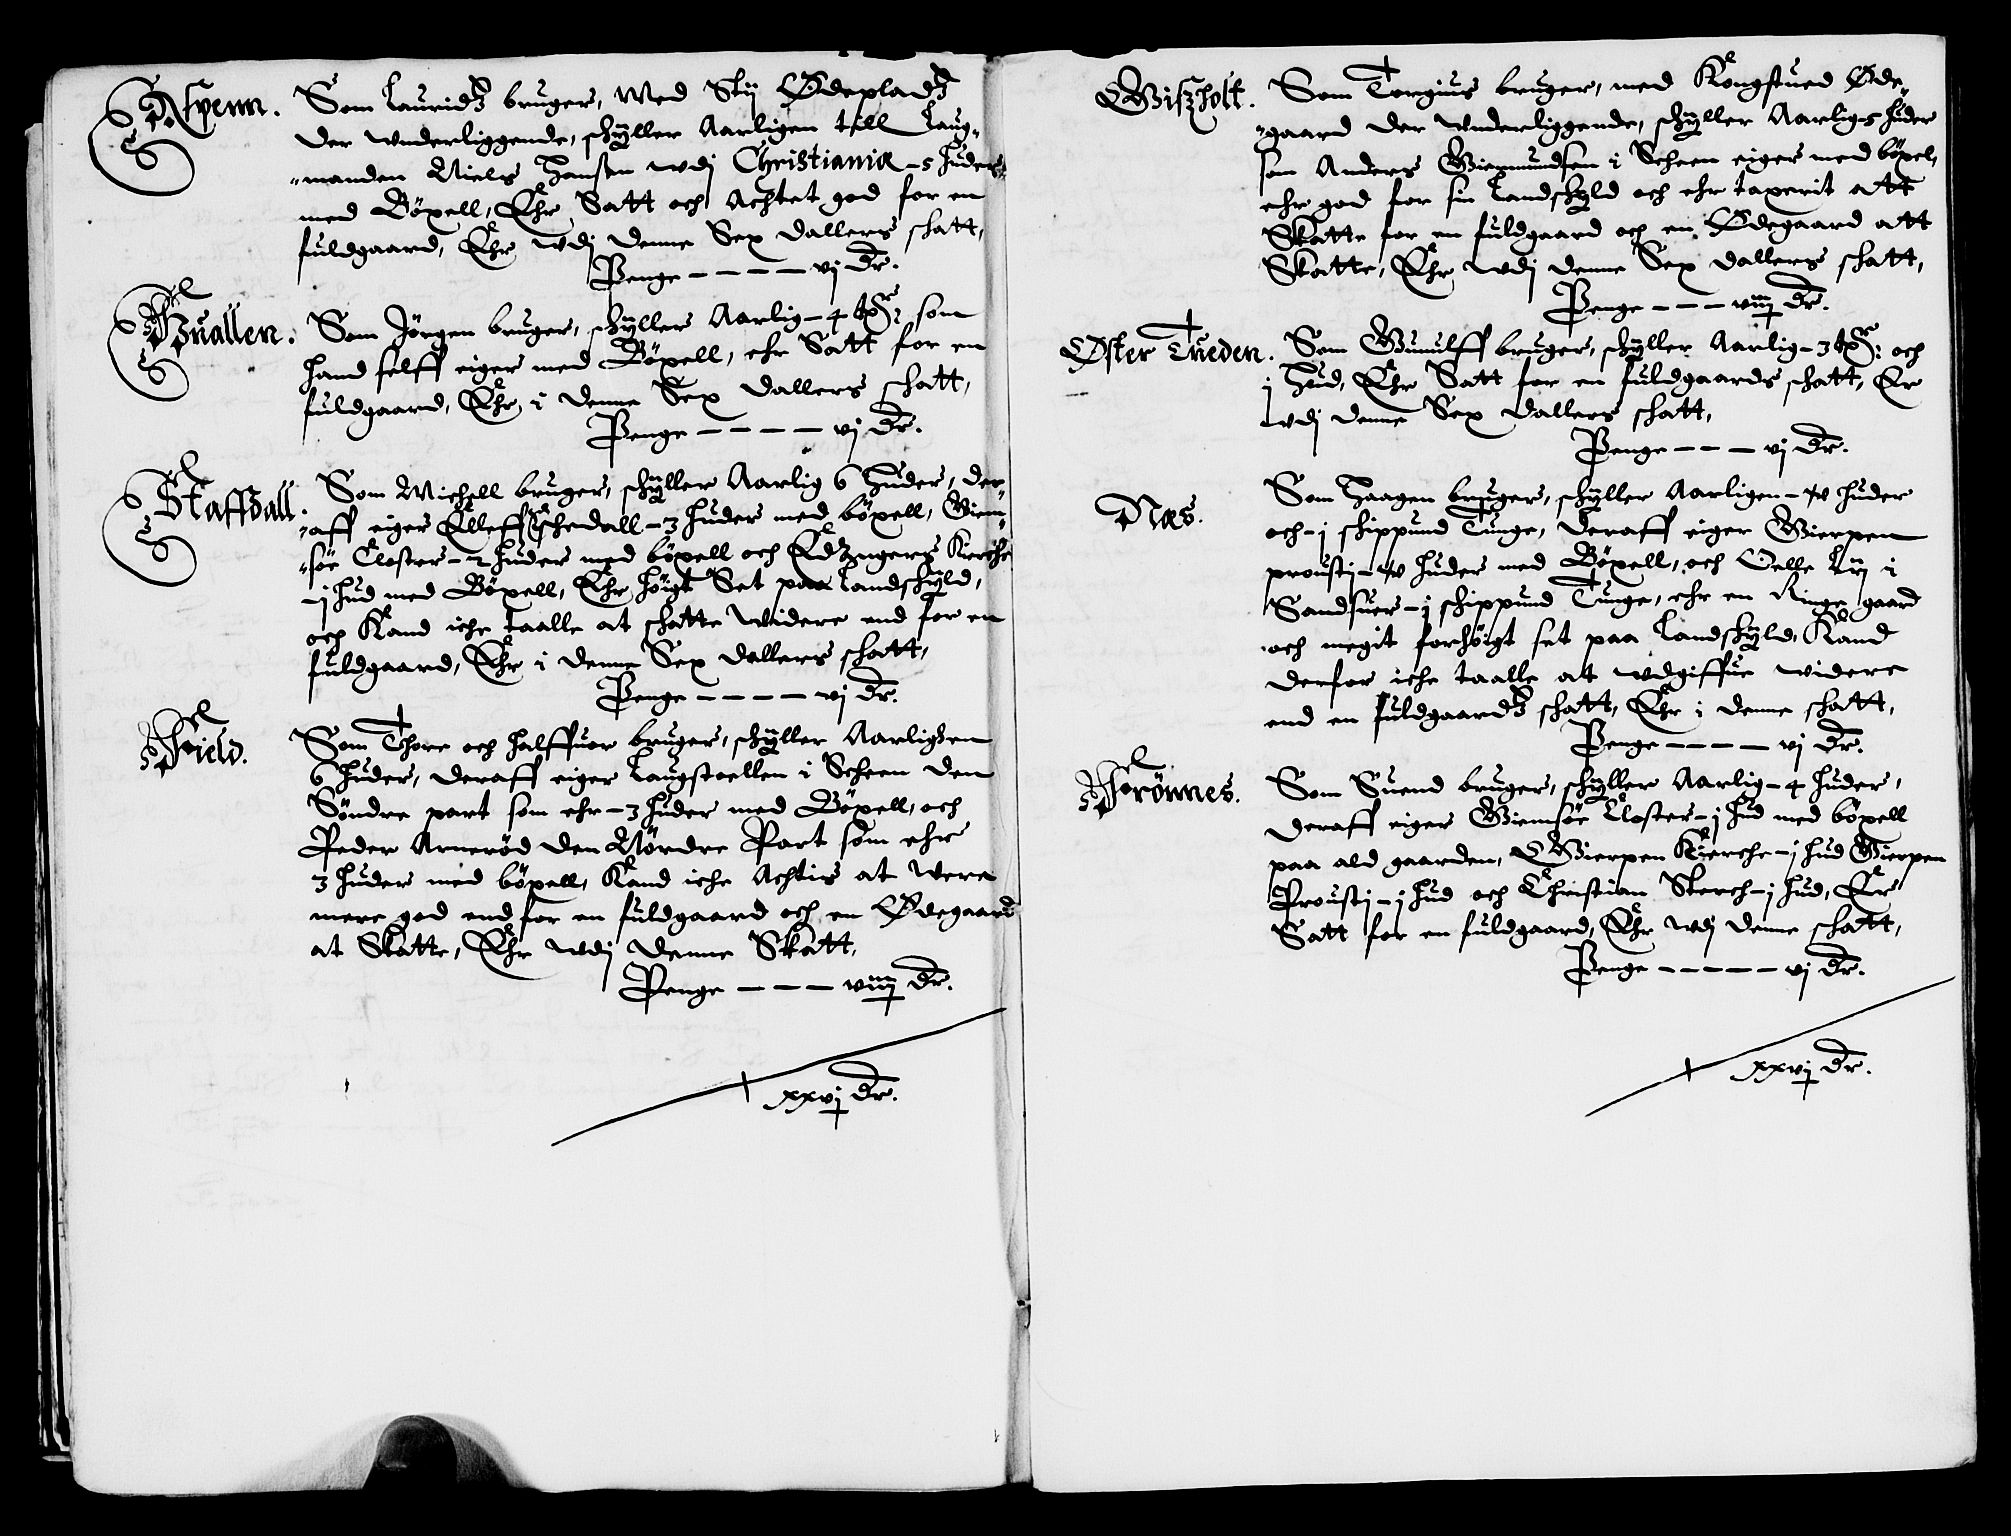 Aspenn. Som Lauridz bruger, Med Stÿ Ødepladz
der underliggende, schÿller Aarligen till Laug-
manden Niels Hansen udj Christiania - 5 huder
med Böxell, Ehr Satt och Achtet god for en
fuldgaard, Ehr udj denne Sex dallers schatt,
Penge - - - - vj dr.
Huallen. Som Jörgen bruger, schÿller Aarlig - 4 txr: som
hand selff eiger med Böxell, ehr Satt for en
fuldgaard, Ehr i denne Sex dallers schatt,
Penge - - - - vj dr.
Staffdall. Som Michell bruger, schÿller Aarlig 6 huder, der-
aff eiger Elleff Eschendall - 3 huder med böxell, Giem-
söe Closter - 2 huder med böxell och Edangers Kirche
- j hud med Böxell, Ehr högt Set paa landschÿld,
och Kand iche taalle at schatte widere end for en
fuldgaard, Ehr i denne Sex dallers schatt,
Penge - - - - vj dr.
Field. Som Thore och halffuor bruger, schÿller Aarligen
6 huder, deraff eiger Laugstoellen i Scheen den
Söndre part som ehr - 3 huder med Böxell, och
Peder Arneröd den Nördre Part som ehr
3 huder med böxell, Kand iche Achtis at were
mere god end for en fuldgaard och en Ødegaard
at Skatte, Ehr udj denne Skatt,
Penge - - - viij dr.
xxvj dr.
Gisholt. Som Torgius bruger, med Kongstued Øde-
gaard der underliggende, schÿller Aarlig 5 huder
som Anders Giermundsen i Scheen eiger med böxel,
ehr god for sin Landschÿld och ehr taxerit att
Skatte for en fuldgaard och en Ødegaard att
Skatte, Ehr udj denne Sex dallers schatt,
Penge - - - viij dr.
Øster Tueden. Som Gunulff bruger, schÿller Aarlig - 3 txr: och
j hud, Ehr Satt for en fuldgaards schatt, Er
udj denne Sex dallers schatt,
Penge - - - vj dr.
Næs. Som Haagen bruger, schÿller Aarligen - huder
och - j schippund Tunge, deraff eiger Gierpen
proustj - huder med Böxell, och Oelle Lÿ i
Sandsuer - j schippund Tunge, ehr en Ringe gaard
och megit forhöigt set paa Landschÿld, Kand
derfor iche taalle at udgiffue widere
end en fuldgaardz schatt, Ehr i denne schatt,
Penge - - - - vj dr.
Frönnes. Som Suend bruger, schÿller Aarlig - 4 huder,
deraff eiger Giemsöe Closter - j hud med böxell
paa ald gaarden, Gierpen Kierche - j hud Gierpen
Proustj - j hud och Christian Sterch - j hud, Er
Satt for en fuldgaard, Ehr udj denne schatt,
Penge - - - - - vj dr.
xxvj dr.